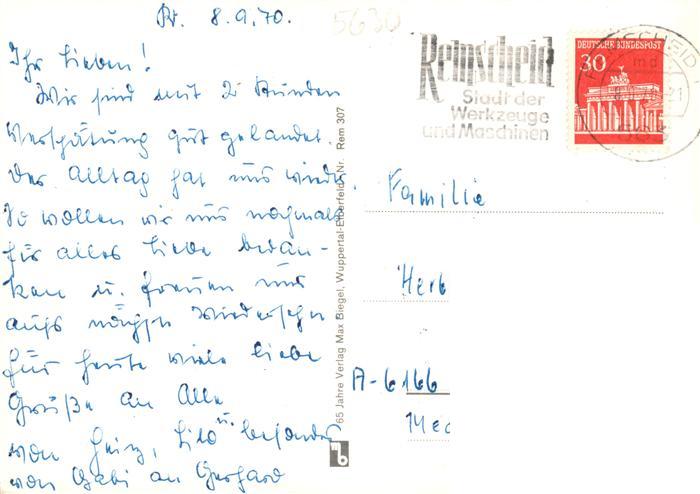 Rr. 8.9.70.
Ihr Lieben!
Wir sind mit 2 Stunden
Verspätung gut gelandet.
Der Alltag hat uns wieder.
So wollen wir uns nochmals
für alles Liebe bedan-
ken u. freuen uns
aufs nächste Wiedersehn.
Für heute viele liebe
Grüße an Alle
von Heinz, Lilo u. besonders
von Gabi an Gerhard
5630
Remscheid
Stadt der
Werkzeuge
und Maschinen
DEUTSCHE BUNDESPOST
30
REMSCHEID
md
563
Familie
Herb
A-6166
Mec
65 Jahre Verlag Max Biegel, Wuppertal-Elberfeld, Nr. Rem 307